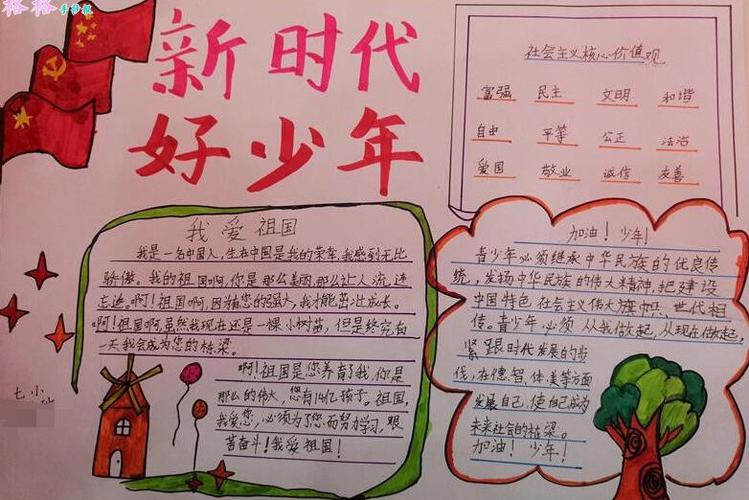 桧桧手抄报
新时代
好少年
社会主义核心价值观
富强 民主 文明 和谐
自由 平等 公正 法治
爱国 敬业 诚信 友善
我爱祖国
我是一名中国人,生在中国是我的荣幸,我感到无比
骄傲。我的祖国啊,你是那么美丽,那么让人流连
忘返。啊!祖国啊,因为您的强大,我才能茁壮成长。
啊!祖国啊,虽然我现在还是一棵小树苗,但是终究有
一天我会成为您的栋梁。
啊!祖国是您养育了我,你是
那么的伟大,您有14亿孩子。祖国,
我爱您,必须为了您而努力学习,艰
苦奋斗!我爱祖国!
加油!少年!
青少年必须继承中华民族的优良传
统,发扬中华民族的伟大精神,把建设
中国特色社会主义伟大旗帜、世代相
传。青少年必须从我做起,从现在做起,
紧跟时代发展的步
伐,在德、智、体、美等方面
发展自己,使自己成为
未来社会的栋梁。
加油!少年!
七小